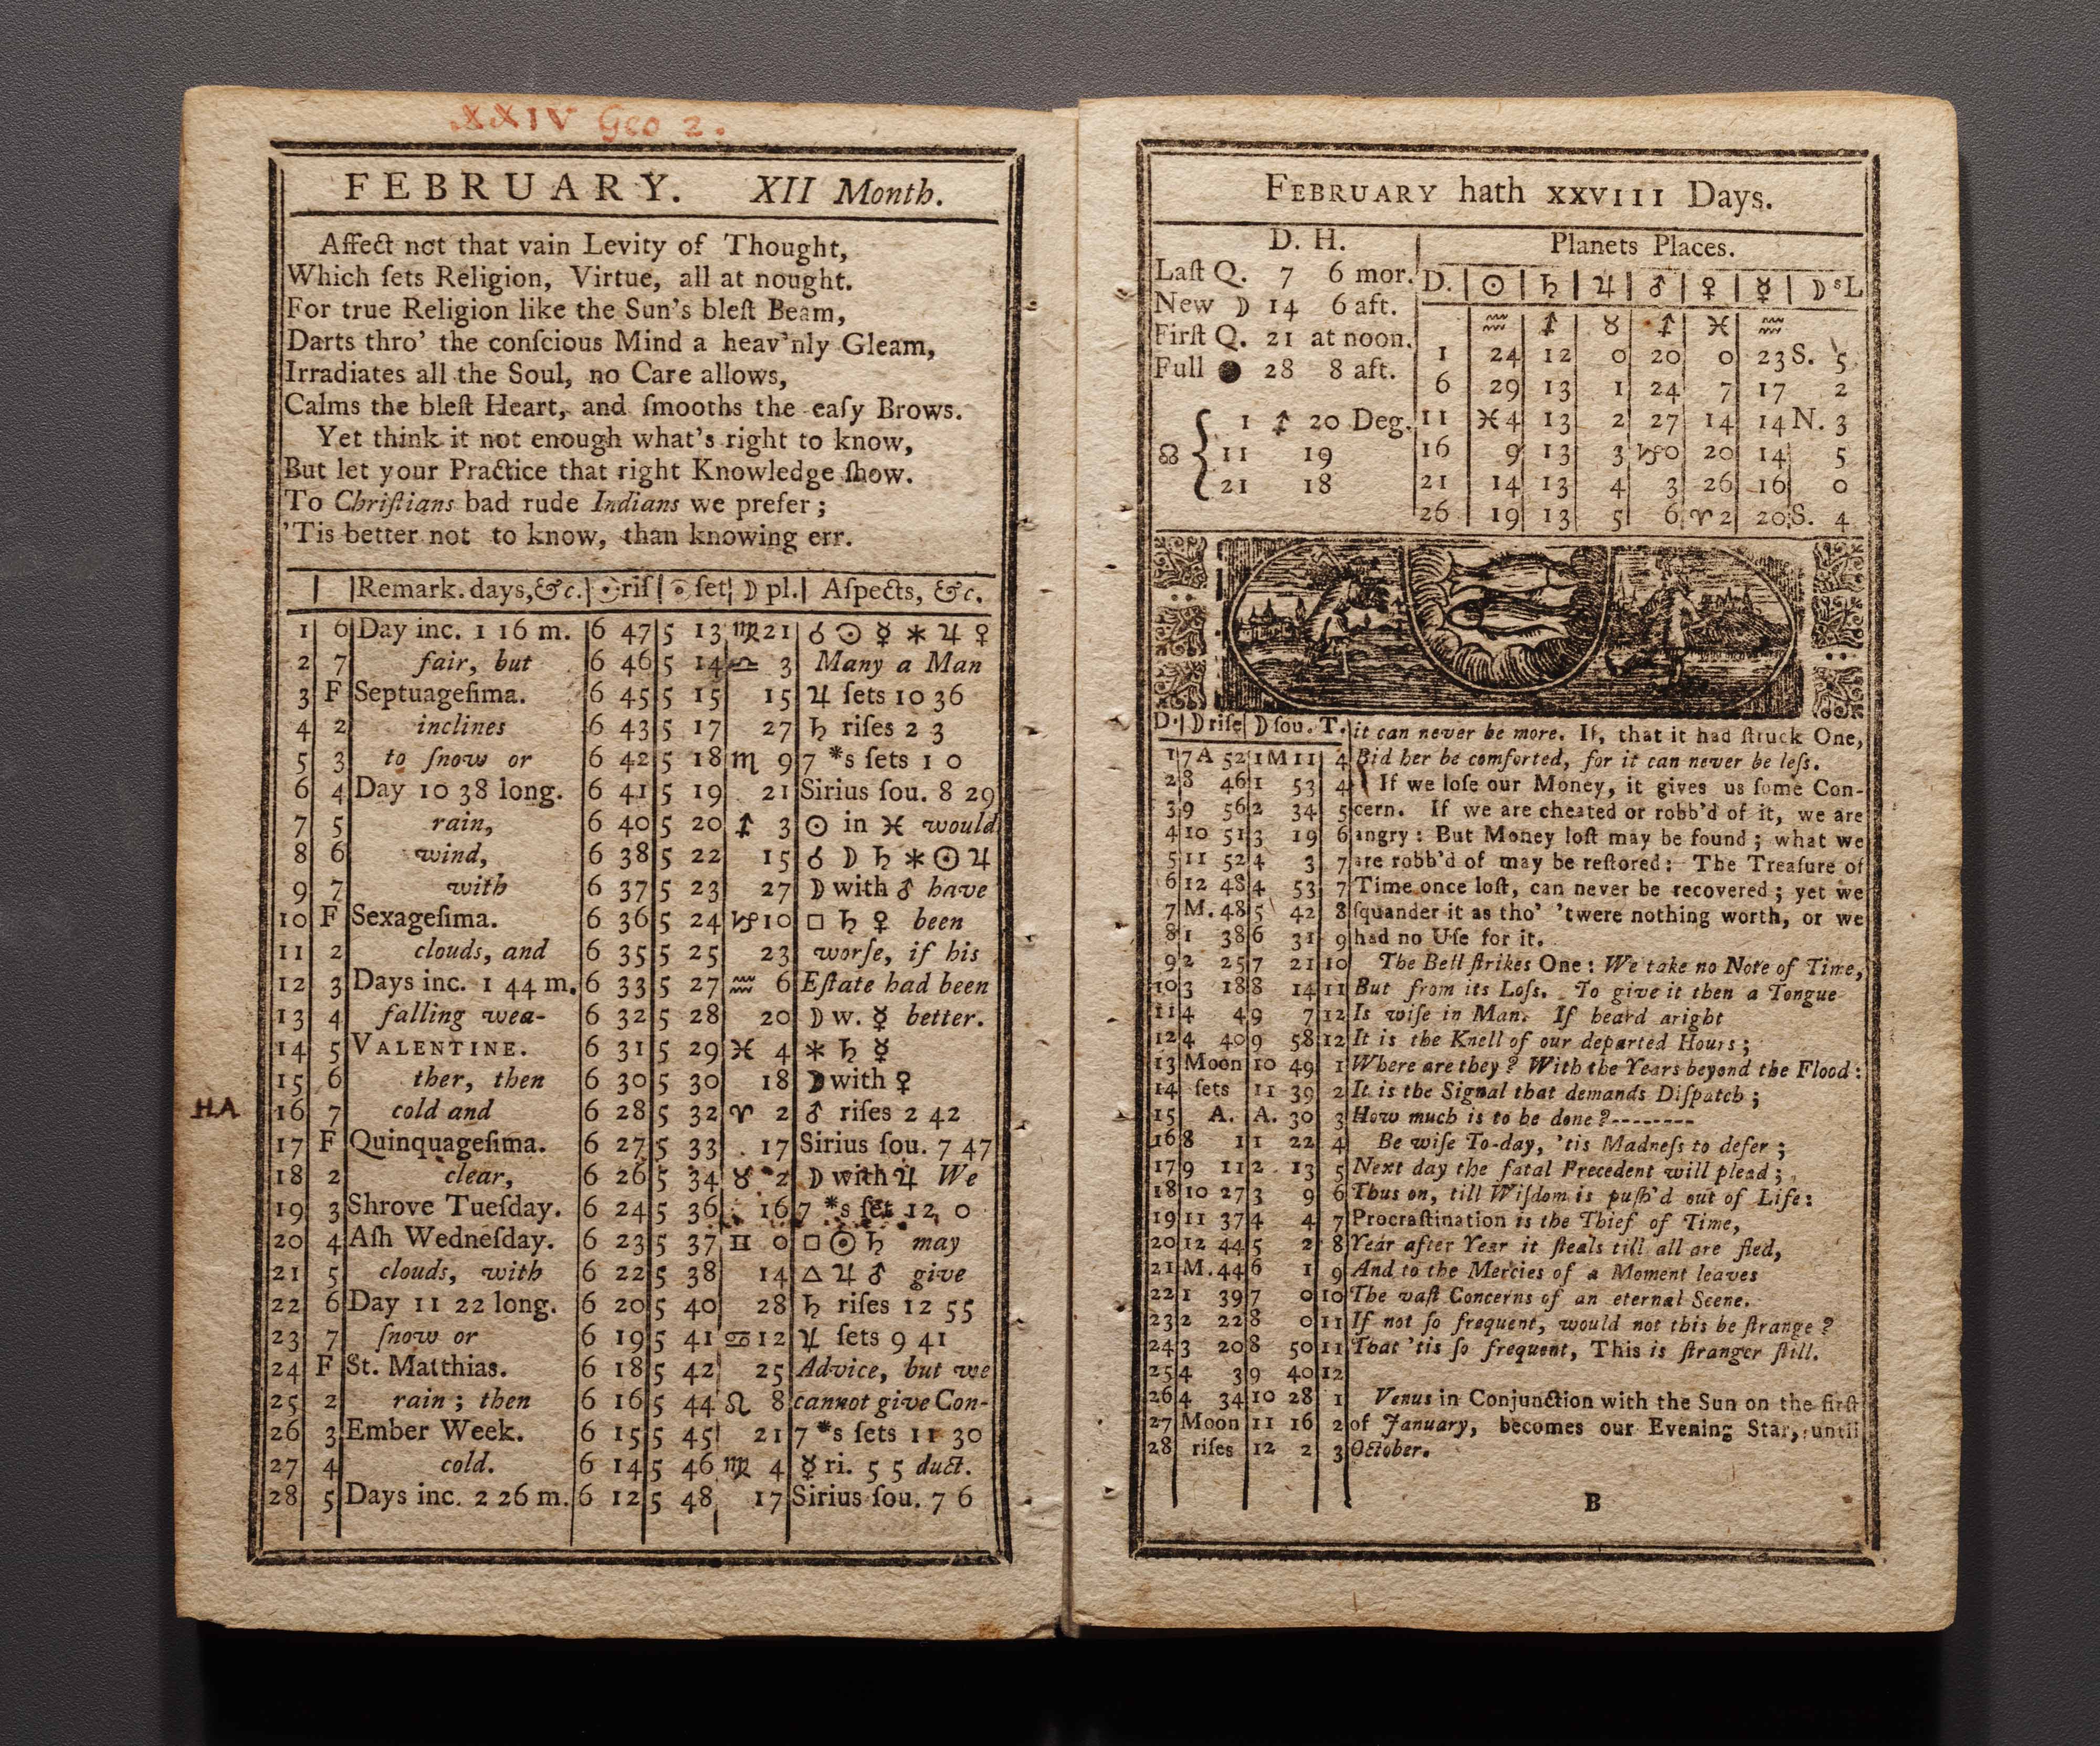 XXIV Geo 2.
FEBRUARY. XII Month.
Affect not that vain Levity of Thought,
Which ſets Religion, Virtue, all at nought.
For true Religion like the Sun's bleſt Beam,
Darts thro' the conſcious Mind a heav'nly Gleam,
Irradiates all the Soul, no Care allows,
Calms the bleſt Heart, and ſmooths the eaſy Brows.
Yet think it not enough what's right to know,
But let your Practice that right Knowledge ſhow.
To Chriſtians bad rude Indians we prefer;
'Tis better not to know, than knowing err.
Remark. days, &c. ☉ riſ ☉ ſet ☽ pl. Aſpects, &c.
1 6 Day inc. 1 16 m. 6 47 5 13 ♍ 21 ☌ ☉ ☿ ⚹ ♃ ♀
2 7 fair, but 6 46 5 14 ♎ 3 Many a Man
3 F Septuageſima. 6 45 5 15 15 ♃ ſets 10 36
4 2 inclines 6 43 5 17 27 ♄ riſes 2 3
5 3 to ſnow or 6 42 5 18 ♏ 9 7 *s ſets 1 0
6 4 Day 10 38 long. 6 41 5 19 21 Sirius ſou. 8 29
7 5 rain, 6 40 5 20 ♐ 3 ☉ in ♓ would
8 6 wind, 6 38 5 22 15 ☌ ☽ ♄ ⚹ ☉ ♃
9 7 with 6 37 5 23 27 ☽ with ♂ have
10 F Sexageſima. 6 36 5 24 ♑ 10 □ ♄ ♀ been
11 2 clouds, and 6 35 5 25 23 worſe, if his
12 3 Days inc. 1 44 m. 6 33 5 27 ♒ 6 Eſtate had been
13 4 falling wea- 6 32 5 28 20 ☽ w. ☿ better.
14 5 VALENTINE. 6 31 5 29 ♓ 4 ⚹ ♄ ☿
15 6 ther, then 6 30 5 30 18 ☽ with ♀
HA 16 7 cold and 6 28 5 32 ♈ 2 ♂ riſes 2 42
17 F Quinquageſima. 6 27 5 33 17 Sirius ſou. 7 47
18 2 clear, 6 26 5 34 ♉ 2 ☽ with ♃ We
19 3 Shrove Tueſday. 6 24 5 36 16 7 *s ſet 12 0
20 4 Aſh Wedneſday. 6 23 5 37 ♊ 0 □ ☉ ♄ may
21 5 clouds, with 6 22 5 38 14 △ ♃ ♂ give
22 6 Day 11 22 long. 6 20 5 40 28 ♄ riſes 12 55
23 7 ſnow or 6 19 5 41 ♋ 12 ♃ ſets 9 41
24 F St. Matthias. 6 18 5 42 25 Advice, but we
25 2 rain; then 6 16 5 44 ♌ 8 cannot give Con-
26 3 Ember Week. 6 15 5 45 21 7 *s ſets 11 30
27 4 cold. 6 14 5 46 ♍ 4 ☿ ri. 5 5 duct.
28 5 Days inc. 2 26 m. 6 12 5 48 17 Sirius ſou. 7 6
FEBRUARY hath XXVIII Days.
D. H.
Laſt Q. 7 6 mor.
New ☽ 14 6 aft.
Firſt Q. 21 at noon.
Full ● 28 8 aft.
☊ 1 ♐ 20 Deg.
11 19
21 18
Planets Places.
D. ☉ ♄ ♃ ♂ ♀ ☿ ☽sL
♒ ♐ ♉ ♐ ♓ ♒
1 24 12 0 20 0 23 S. 5
6 29 13 1 24 7 17 2
11 ♓4 13 2 27 14 14 N. 3
16 9 13 3 ♑0 20 14 5
21 14 13 4 3 26 16 0
26 19 13 5 6 ♈2 20 S. 4
D. ☽ riſe ☽ ſou. T.
1 7 A 52 1 M 11 4
2 8 46 1 53 4
3 9 56 2 34 5
4 10 51 3 19 6
5 11 52 4 3 7
6 12 48 4 53 7
7 M. 48 5 42 8
8 1 38 6 31 9
9 2 25 7 21 10
10 3 18 8 14 11
11 4 4 9 7 12
12 4 40 9 58 12
13 Moon 10 49 1
14 ſets 11 39 2
15 A. A. 30 3
16 8 11 1 22 4
17 9 11 2 13 5
18 10 27 3 9 6
19 11 37 4 4 7
20 12 44 5 2 8
21 M. 44 6 1 9
22 1 39 7 0 10
23 2 22 8 0 11
24 3 20 8 50 11
25 4 3 9 40 12
26 4 34 10 28 1
27 Moon 11 16 2
28 riſes 12 2 3
it can never be more. If, that it had ſtruck One,
Bid her be comforted, for it can never be leſs.
If we loſe our Money, it gives us ſome Con-
cern. If we are cheated or robb'd of it, we are
angry: But Money loſt may be found; what we
are robb'd of may be reſtored: The Treaſure of
Time once loſt, can never be recovered; yet we
ſquander it as tho' 'twere nothing worth, or we
had no Uſe for it.
The Bell ſtrikes One: We take no Note of Time,
But from its Loſs. To give it then a Tongue
Is wiſe in Man. If heard aright
It is the Knell of our departed Hours;
Where are they? With the Years beyond the Flood:
It is the Signal that demands Diſpatch;
How much is to be done?--------
Be wiſe To-day, 'tis Madneſs to defer;
Next day the fatal Precedent will plead;
Thus on, till Wiſdom is puſh'd out of Life:
Procraſtination is the Thief of Time,
Year after Year it ſteals till all are fled,
And to the Mercies of a Moment leaves
The vaſt Concerns of an eternal Scene.
If not ſo frequent, would not this be ſtrange?
That 'tis ſo frequent, This is ſtranger ſtill.
Venus in Conjunction with the Sun on the firſt
of January, becomes our Evening Star, until
October.
B